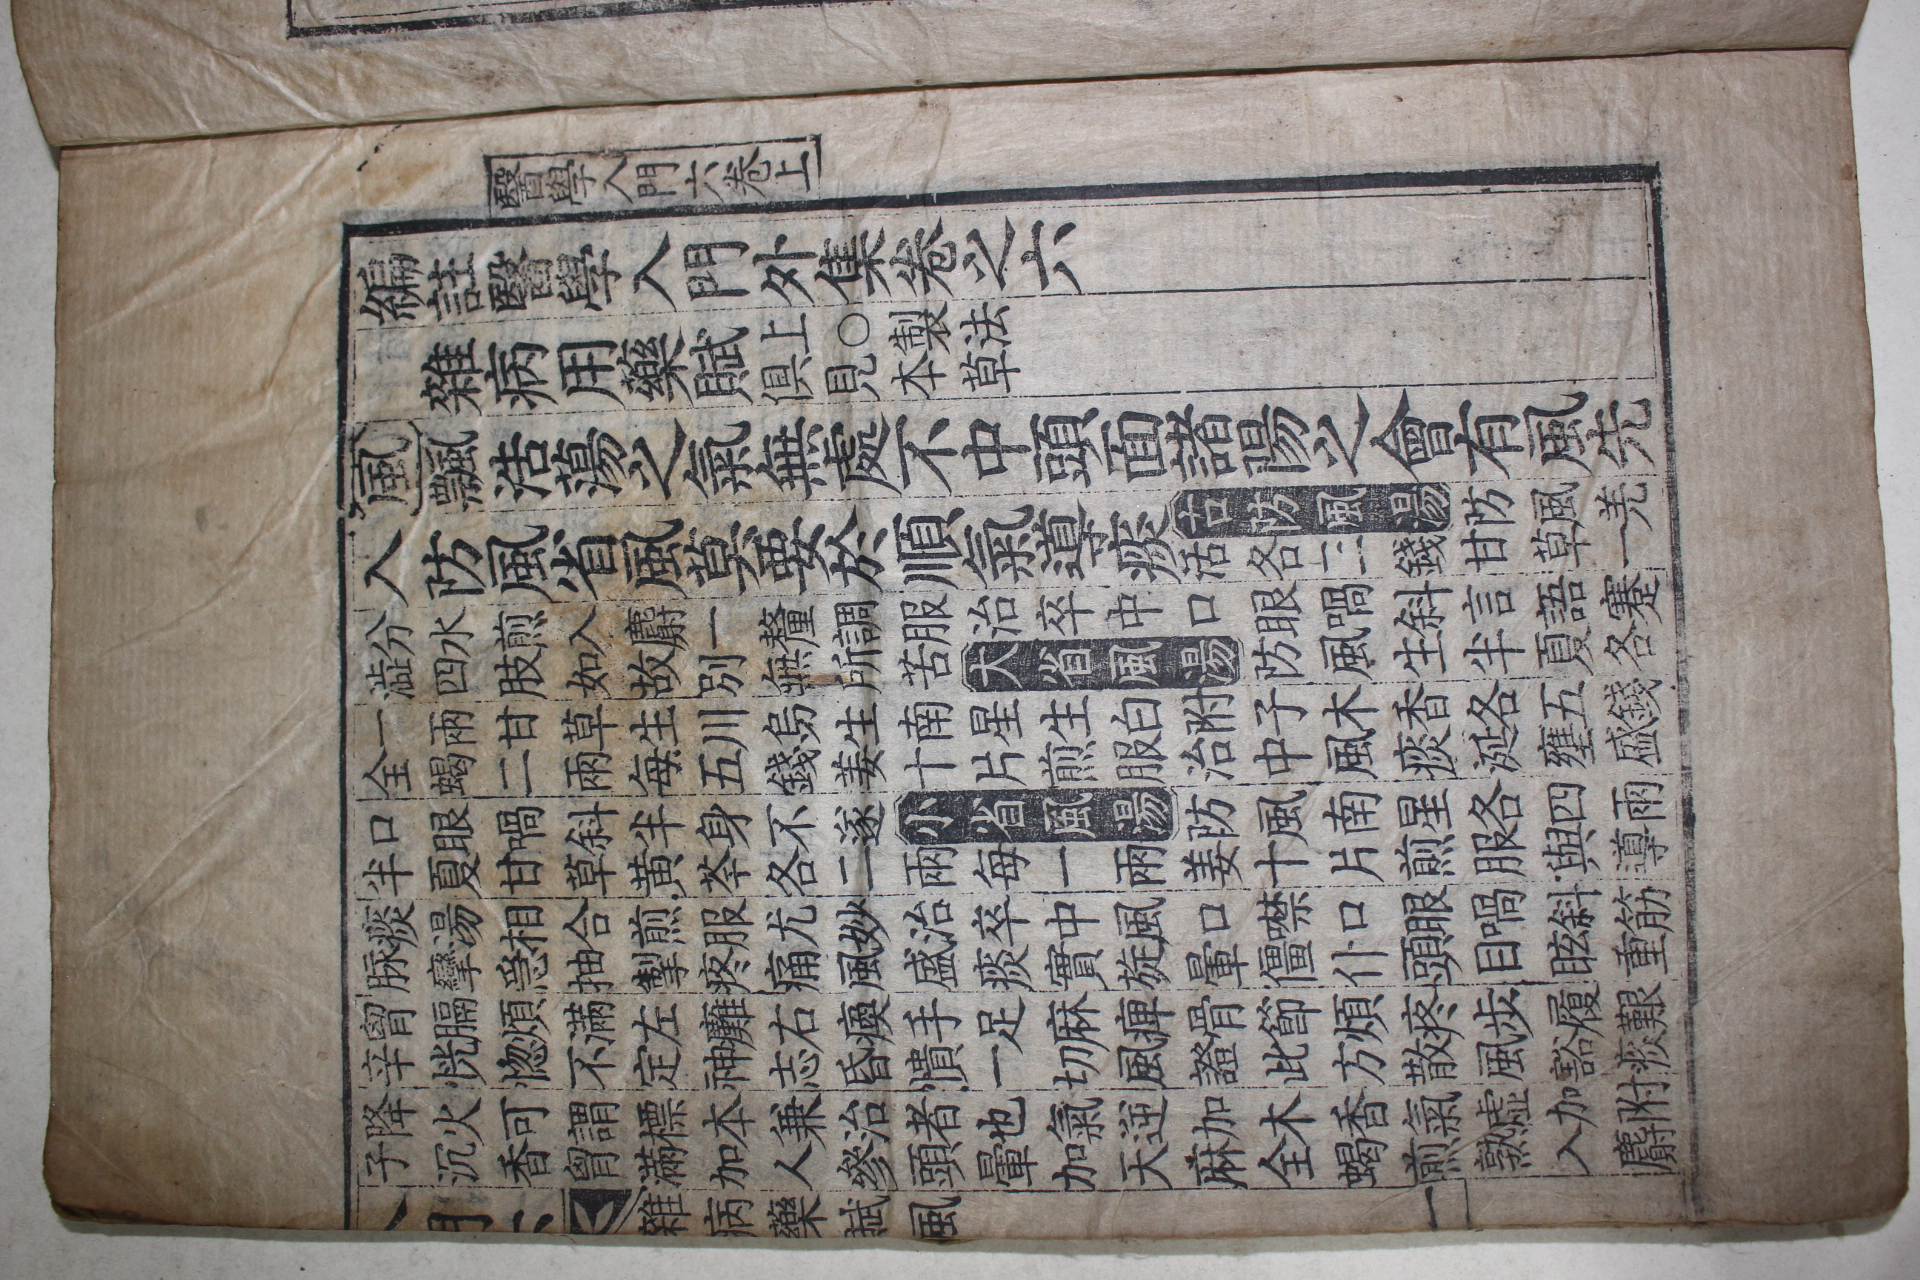 醫學入門六卷上
編註醫學入門外集卷之六
雜病用藥賦
上○製法
俱見本草
風飄浩蕩之氣無處不中頭面諸陽之會有風先
入防風省風莫要於順氣導痰
古防風湯防風羌
活各三錢甘草一
分水煎入麝一釐調服治卒中口眼喎斜言語蹇
澁四肢如故別無所苦大省風湯防風生半夏各
一兩甘草生川烏生南星生白附子木香各五錢
全蝎二兩每五錢姜十片煎服治中風痰涎壅盛
口眼喎斜半身不遂小省風湯防風南星各四兩
半夏甘草黃芩各二兩每一兩姜十片煎服與導
痰湯相合煎服尤妙治卒中風口噤口眼喎斜筋
脉攣急抽掣疼痛風盛痰實旋暈僵仆頭目眩重
胷膈煩滿左癱右瘓手足麻痺骨節煩疼步履艱
辛恍惚不定神志昏憒一切風證此方散風豁痰
降火可謂標本兼治者也氣逆加木香氣虛加附
子沉香胷滿加人參頭暈加天麻全蝎煎熟入麝
入門六 雜病藥賦 風 一